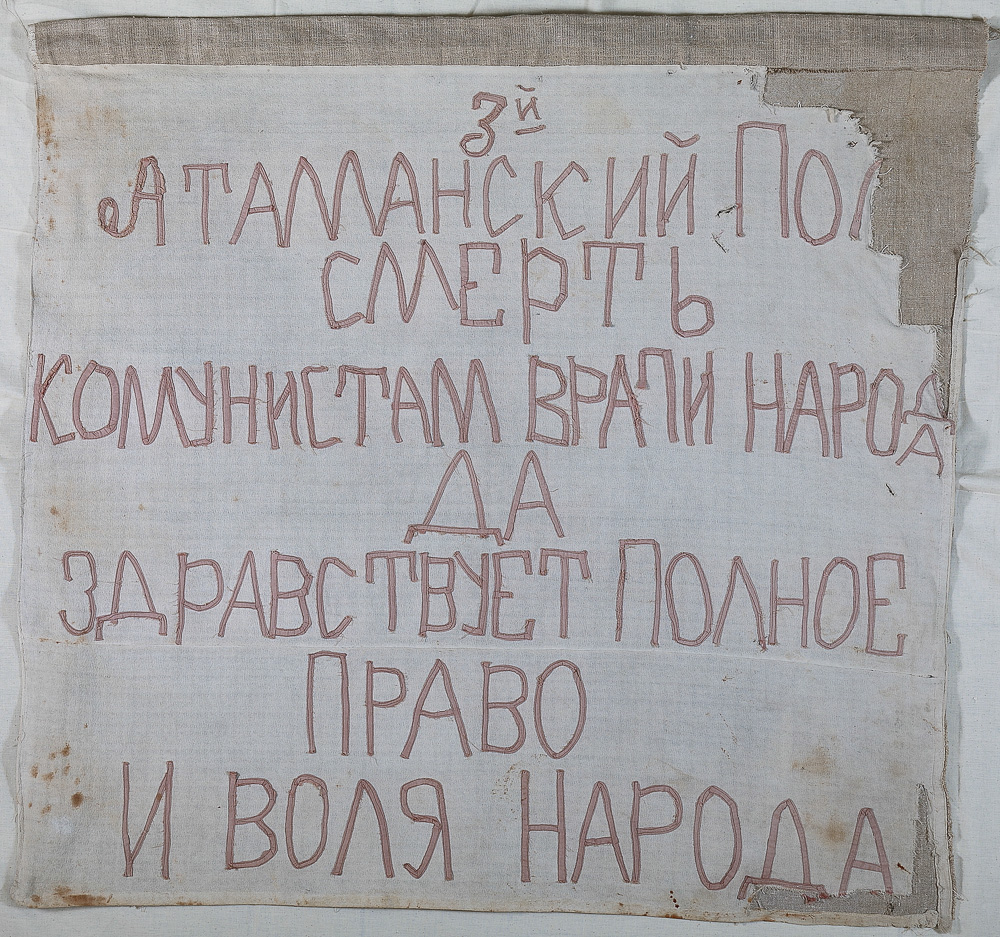 3й
АТАМАНСКИЙ ПОЛ
СМЕРТЬ
КОМУНИСТАМ ВРАГИ НАРОДА
ДА
ЗДРАВСТВУЕТ ПОЛНОЕ
ПРАВО
И ВОЛЯ НАРОДА